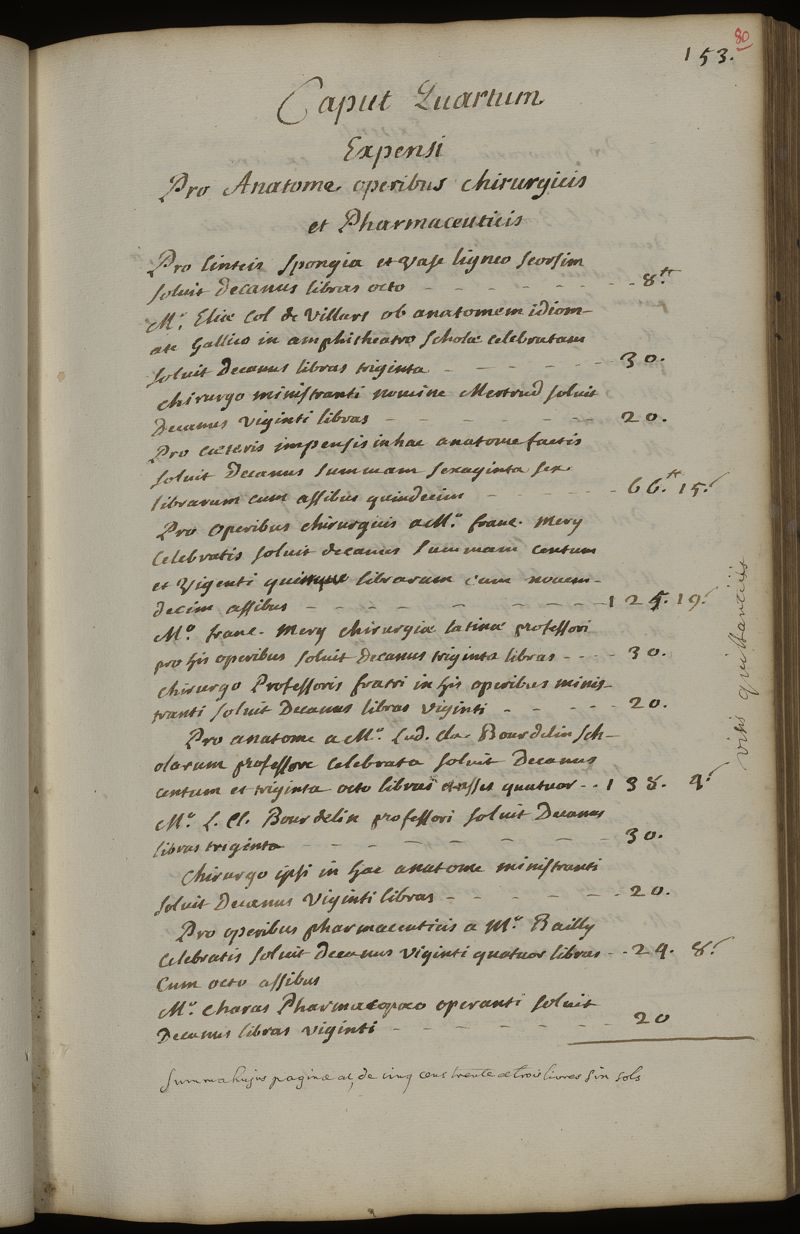 80
153.
Caput Quartum
Expensi
Pro Anatome operibus chirurgicis
et Pharmaceuticis
Pro linteis spongia et vase ligneo seorsim
soluit decanus libras octo - - - - - - - 8.tt
Mo. Eliæ Col de Villars ob anatomem idiom-
ate Gallico in amphitheatro scholæ celebratam
soluit decanus libras triginta - - - - - - 30.
chirurgo ministranti nomine Mertrud soluit
Decanus viginti libras - - - - - - - - 20.
Pro cæteris impensis in hac anatome factis
soluit Decanus summam sexaginta sex
librarum cum assibus quindecim - - - - - 66.tt 15.s
Pro operibus chirurgicis a Mo. franc. Mery
celebratis soluit decanus summam centum
et viginti quinque librarum cum novem-
decim assibus - - - - - - - - - 125. 19.s
Mo. franc. Mery chirurgiæ latinæ professori
pro his operibus soluit Decanus triginta libras - - - - 30.
chirurgo Professoris fratri in his operibus minis-
tranti soluit Decanus libras viginti - - - - - 20.
Pro anatome a Mo. Lud. Cla. Bourdelin sch-
olarum professore celebrata soluit Decanus
centum et triginta octo libras et asses quatuor - - 138. 4.s
Mo. L. Cl. Bourdelin professori soluit Decanus
libras triginta - - - - - - - - - - 30.
chirurgo ipsi in hac anatome ministranti
soluit Decanus viginti libras - - - - - - - 20.
Pro operibus pharmaceuticis a Mo. Bailly
celebratis soluit Decanus viginti quatuor libras - - 24. 8.s
cum octo assibus
Mo. charas Pharmacopœo operanti soluit
Decanus libras viginti - - - - - - - - 20
summa hujus paginæ est de cinq cens trente et trois livres six sols
visis quittanciis